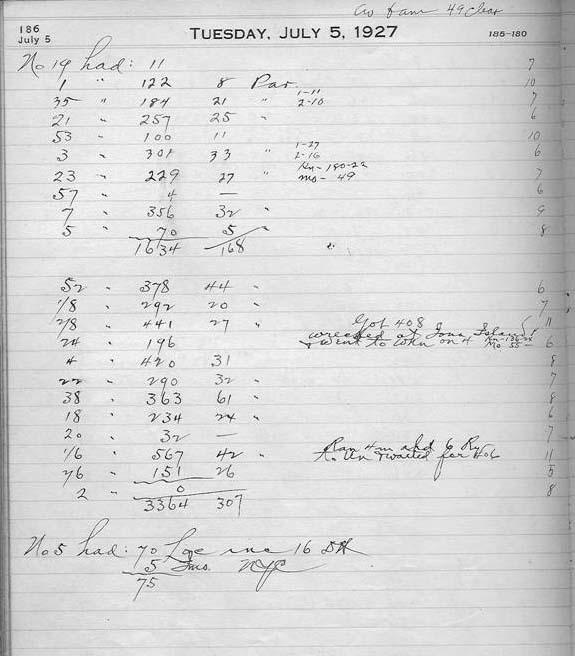 49 Clear
186
July 5
TUESDAY, JULY 5, 1927
186-180
No 19 had: 11 7
1 " 122 8 Par 10
35 " 184 21 " 1-11 2-10 7
21 " 257 25 " 6
53 " 100 11 10
3 " 301 33 " 1-27 2-16 6
23 " 229 27 " Hn-180-22 Mo-49 7
57 " 4 — 6
7 " 356 32 " 9
5 " 70 5 " 8
1634 168 "
52 " 378 44 " 6
1/8 " 292 20 " 7
2/8 " 441 27 " Got 408 11
wrecked at Iona Island
24 " 196 & went to on 4 6
4 " 420 31 8
22 " 290 32 " 7
38 " 363 61 " 8
18 " 234 24 " 6
20 " 32 — 7
1/6 " 567 42 " Ran 4m ahd 6 11
waited for 406
26 " 151 26 5
2 " 0 8
3364 307
No 5 had: 70 inc 16
5 NYC
75